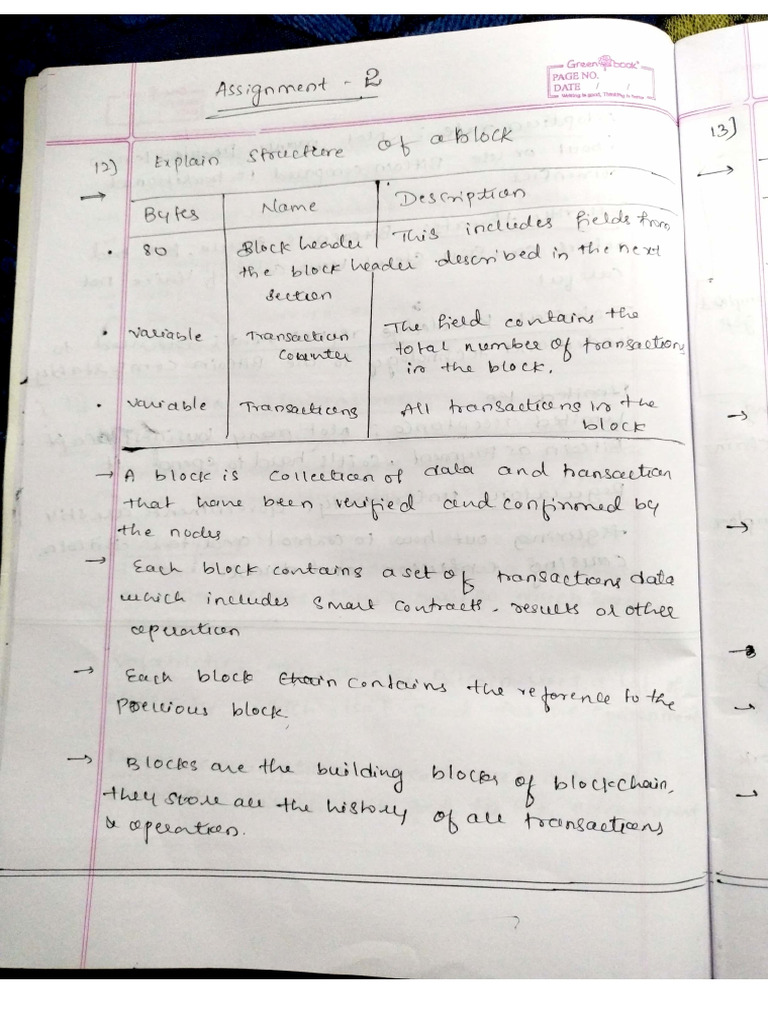 Green book
PAGE NO.
DATE / /
Assignment - 2
13]
12] Explain structure of a block
Bytes Name Description
80 Block header This includes fields from
the block header described in the next
section
variable Transaction The field contains the
Counter total number of transactions
in the block.
variable Transactions All transactions in the
block
→ A block is collection of data and transaction
that have been verified and confirmed by
the nodes
→ Each block contains a set of transactions data
which includes smart contracts, results or other
operation
→ Each block contains the reference to the
previous block.
→ Blocks are the building blocks of blockchain,
they store all the history of all transactions
& operation.